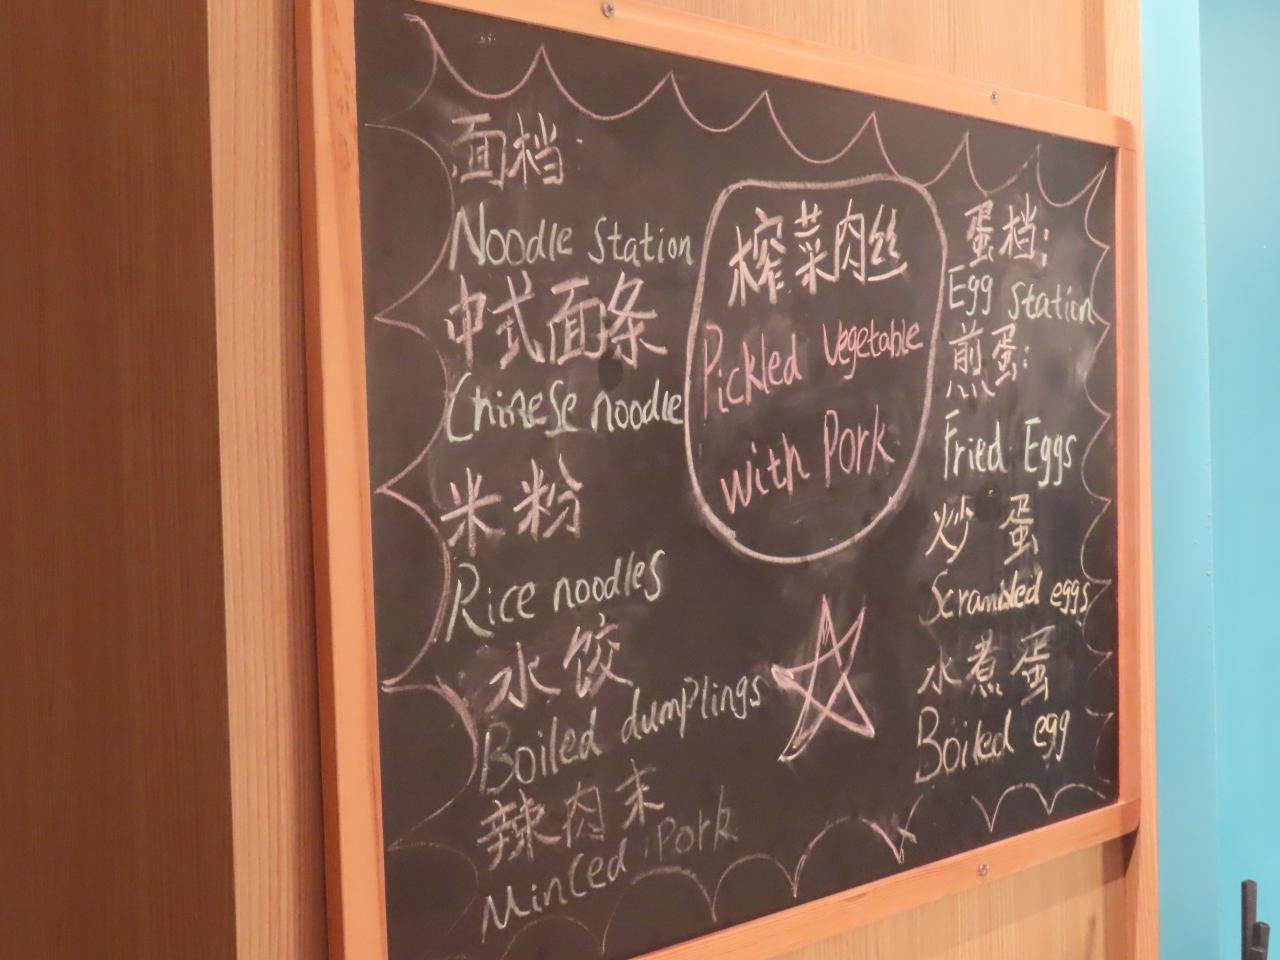 面档:
Noodle Station
中式面条
Chinese noodle
米粉
Rice noodles
水饺
Boiled dumplings
辣肉末
Minced Pork
榨菜肉丝
Pickled Vegetable
with Pork
蛋档:
Egg Station
煎蛋:
Fried Eggs
炒蛋
Scrambled eggs
水煮蛋
Boiled egg